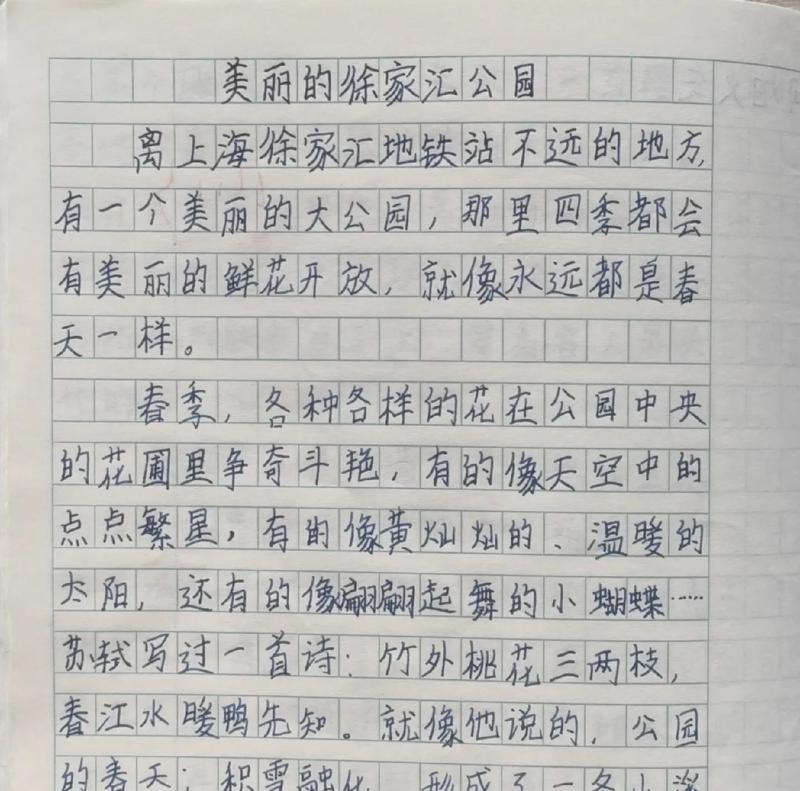 美丽的徐家汇公园
离上海徐家汇地铁站不远的地方,
有一个美丽的大公园,那里四季都会
有美丽的鲜花开放,就像永远都是春
天一样。
春季,各种各样的花在公园中央
的花圃里争奇斗艳,有的像天空中的
点点繁星,有的像黄灿灿的、温暖的
太阳,还有的像翩翩起舞的小蝴蝶……
苏轼写过一首诗:竹外桃花三两枝,
春江水暖鸭先知。就像他说的,公园
的春天,积雪融化,形成了一条小溪